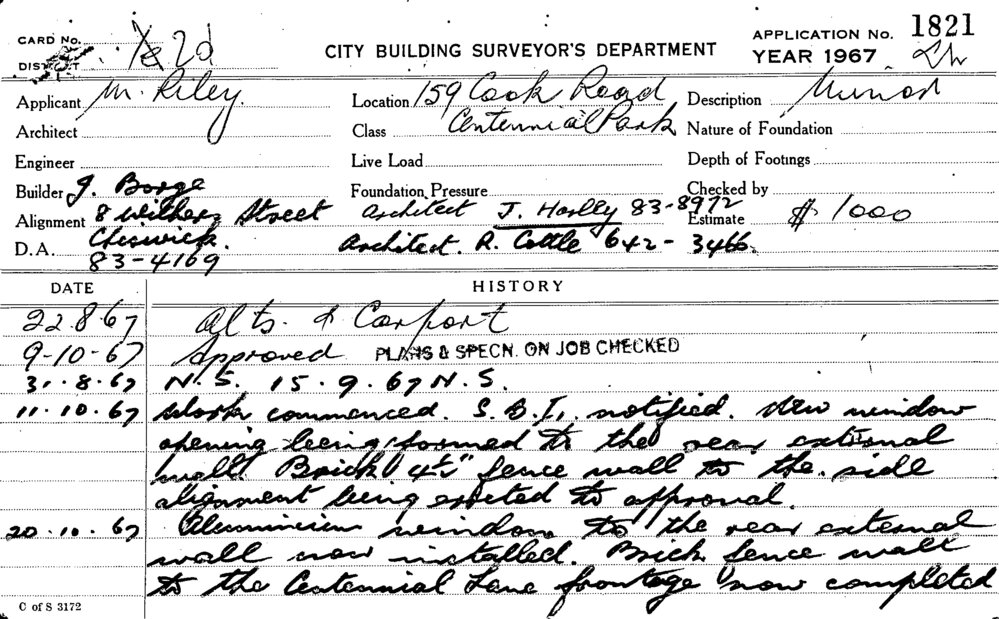 CARD No. 2d
DISTRICT
CITY BUILDING SURVEYOR'S DEPARTMENT
APPLICATION No. 1821
YEAR 1967
Applicant M. Riley. Location 159 Cook Road Description Minor
Architect Class Centennial Park Nature of Foundation
Engineer Live Load Depth of Footings
Builder J. Borge Foundation Pressure Checked by
Alignment 8 Withers Street Architect J. Horlley 83-8972 Estimate $ 1000
D.A. Chiswick. Architect. R. Cottle 642-3466.
83-4169
DATE HISTORY
22.8.67 Alts. & Carport
9-10-67 Approved PLANS & SPECN. ON JOB CHECKED
31.8.67 N.S. 15.9.67 N.S.
11.10.67 Work commenced. S.B.I. notified. New window
opening being formed to the rear external
wall. Brick 4½" fence wall to the side
alignment being erected to approval.
20.10.67 Aluminium window to the rear external
wall now installed. Brick fence wall
to the Centennial Lane frontage now completed
C of S 3172